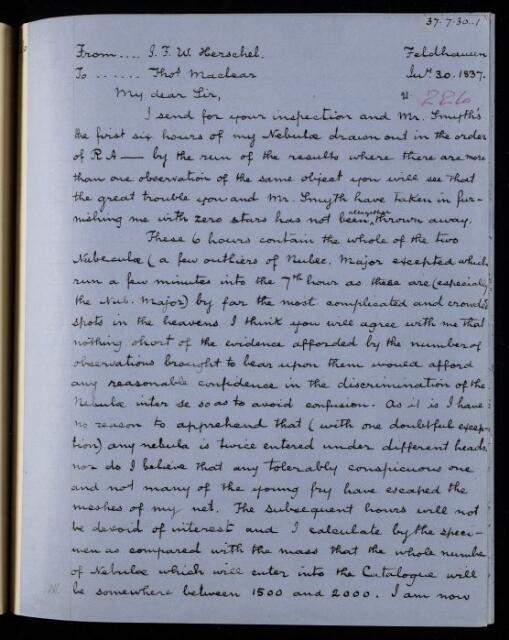 37.7.30.1
From.... J. F. W. Herschel. Feldhausen
To ...... Thos. Maclear July 30. 1837.
My dear Sir, 226
I send for your inspection and Mr. Smyth's
the first six hours of my Nebulæ drawn out in the order
of RA — by the run of the results where there are more
than one observation of the same object you will see that
the great trouble you and Mr. Smyth have taken in fur-
nishing me with zero stars has not been altogether thrown away.
These 6 hours contain the whole of the two
Nubeculæ (a few outliers of Nubec. Major excepted which
run a few minutes into the 7th hour as these are (especially
the Nub. Major) by far the most complicated and crowded
spots in the heavens I think you will agree with me that
nothing short of the evidence afforded by the number of
observations brought to bear upon them would afford
any reasonable confidence in the discrimination of the
Nebulæ inter se so as to avoid confusion. As it is I have
no reason to apprehend that (with one doubtful excep-
tion) any nebula is twice entered under different heads.
nor do I believe that any tolerably conspicuous one
and not many of the young fry have escaped the
meshes of my net. The subsequent hours will not
be devoid of interest and I calculate by the speci-
men as compared with the mass that the whole number
of Nebulæ which will enter into the Catalogue will
be somewhere between 1500 and 2000. I am now